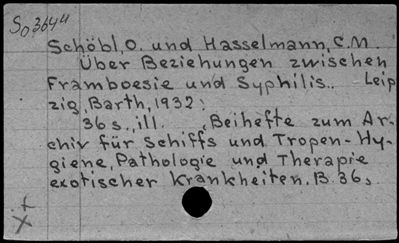 So3644
Schöbl, O. und Hasselmann, C.M.
Über Beziehungen zwischen
Framboesie und Syphilis.. Leip
zig, Barth, 1932:
36 s., ill. , Beihefte zum Ar-
chiv für Schiffs und Tropen-Hy-
giene, Pathologie und Therapie
exotischer Krankheiten. B. 36,